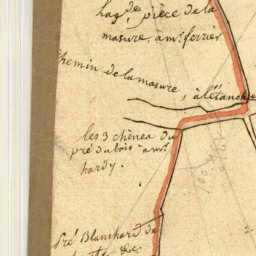 la g.de pièce de la
masure, a m.r ferrer
chemin de la masure, a l'etang
les 3 chênes du
pré du bois a m.r
hardy.
Pré Blanchard de